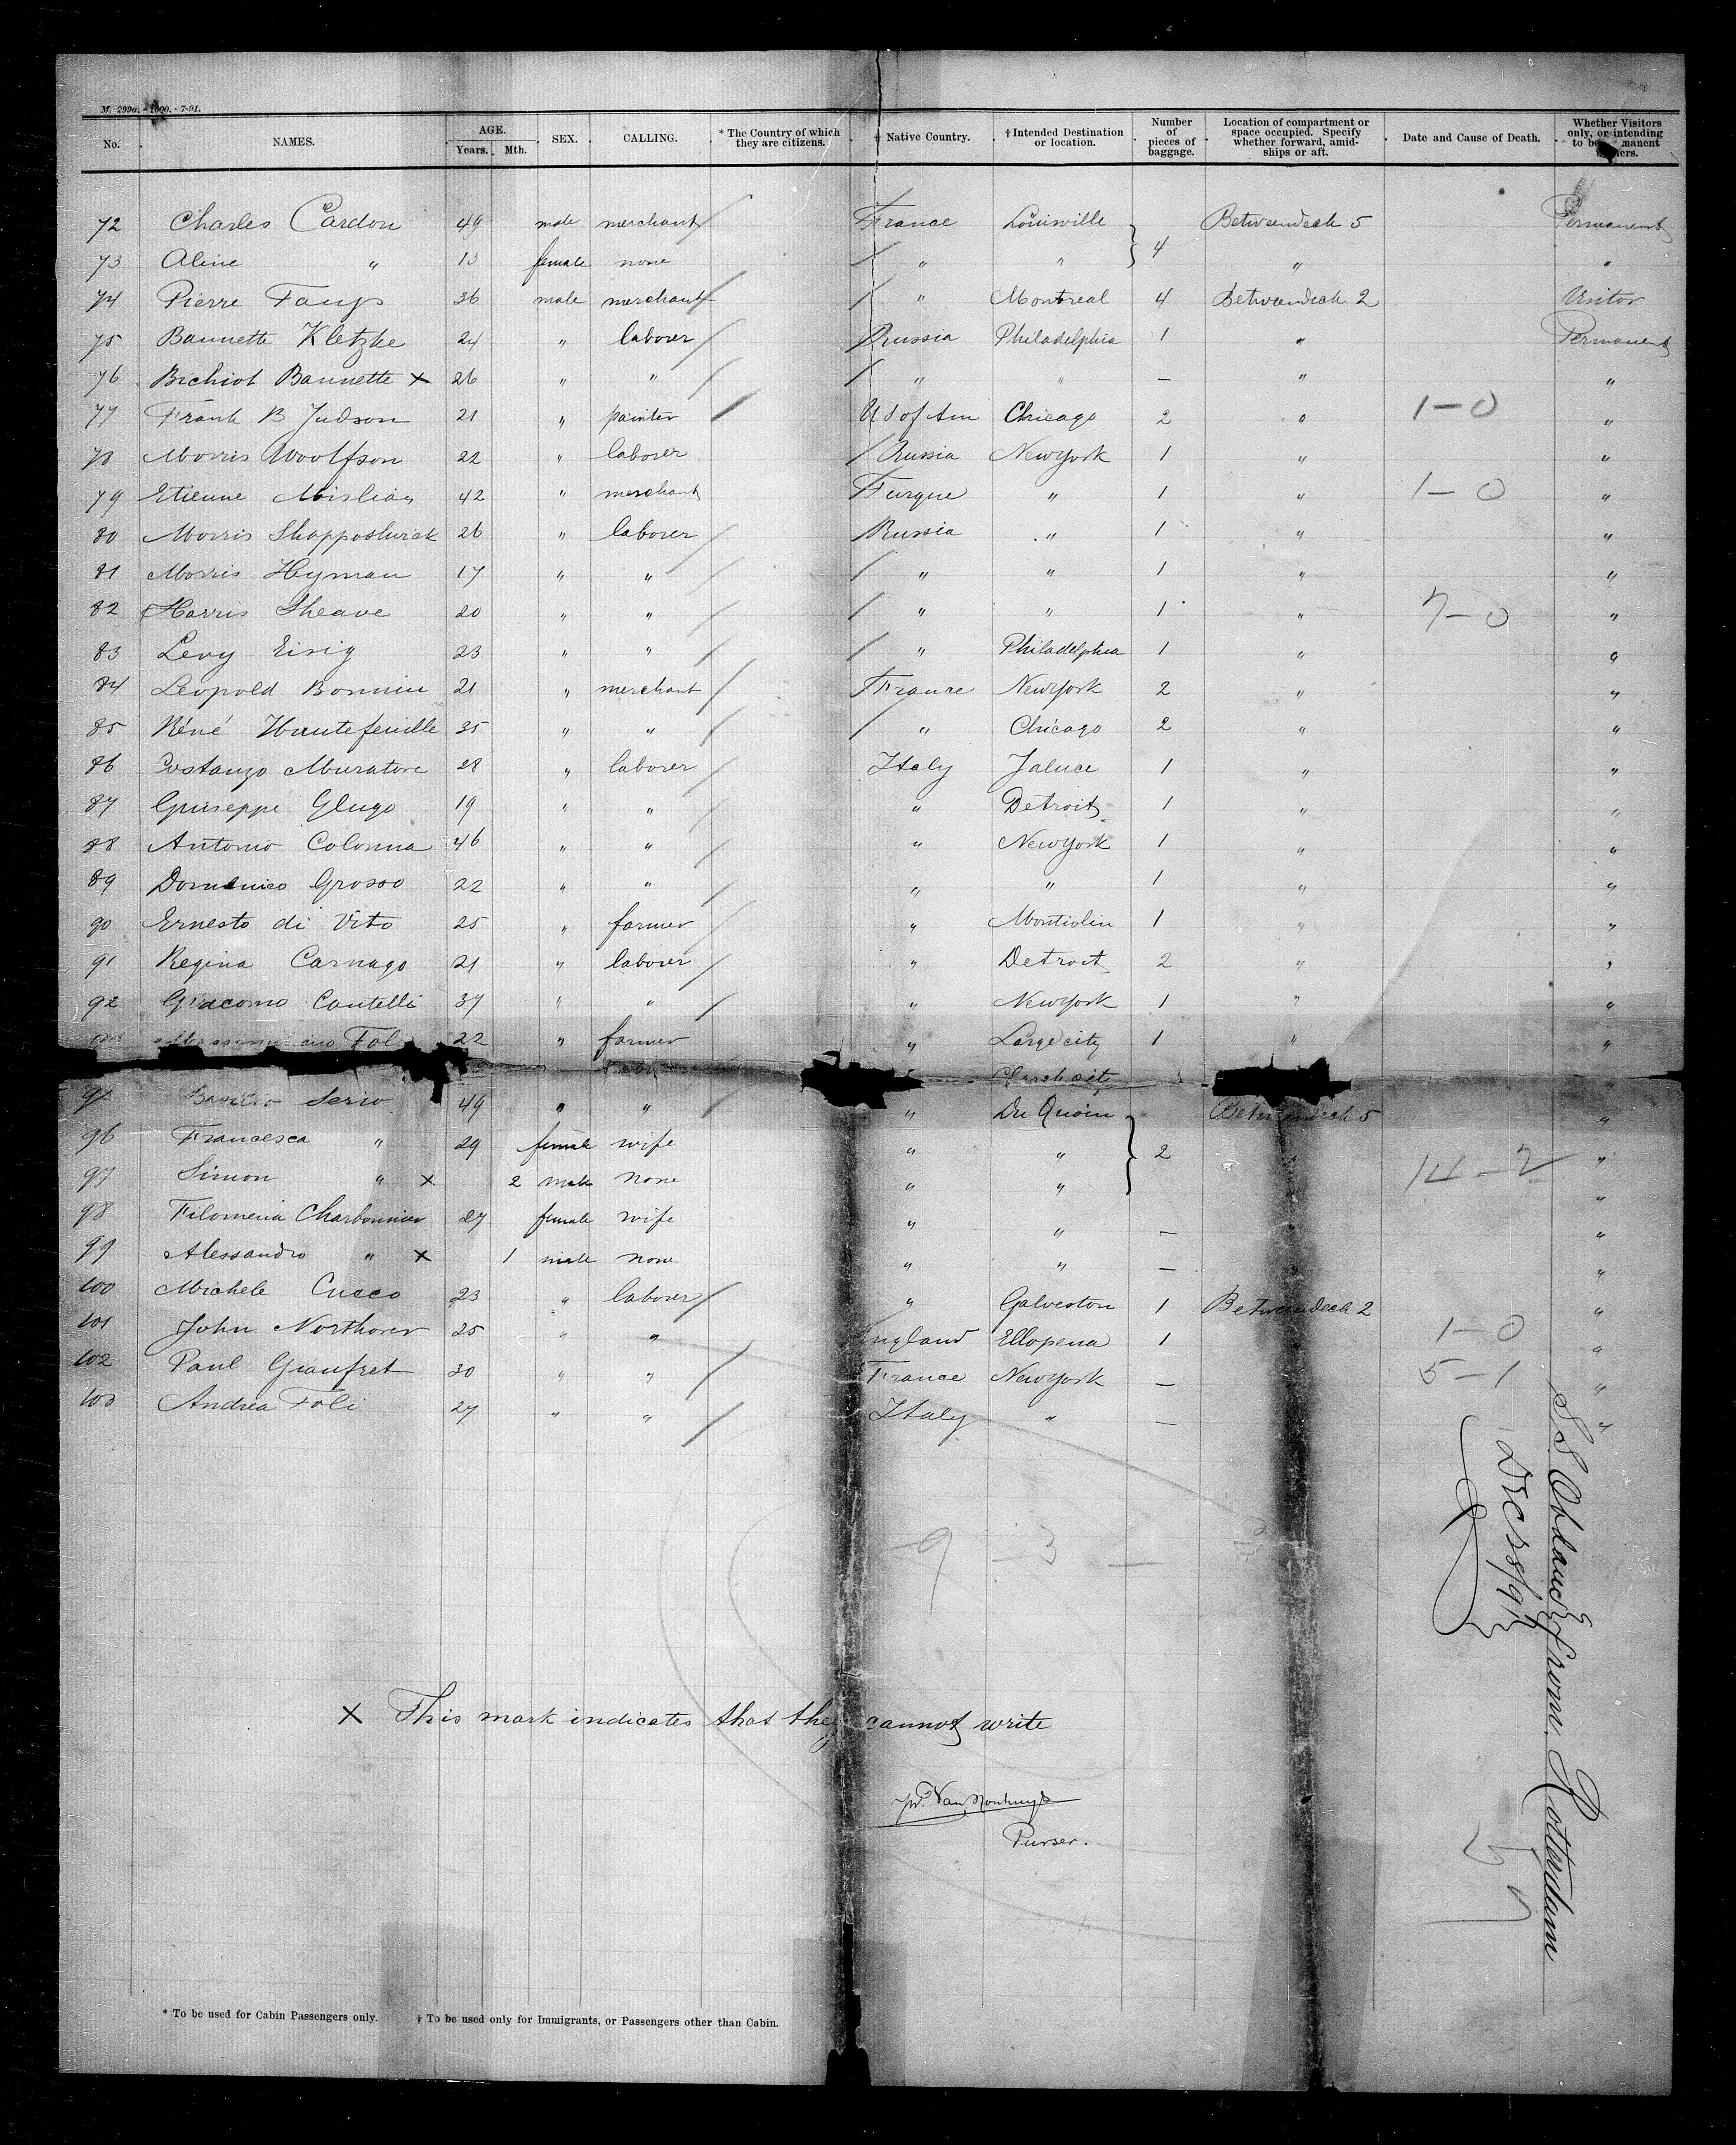 M. 299a. - 1000. - 7-91.
No. NAMES. AGE. Years. Mth. SEX. CALLING. * The Country of which they are citizens. † Native Country. † Intended Destination or location. Number of pieces of baggage. Location of compartment or space occupied. Specify whether forward, amidships or aft. Date and Cause of Death. Whether Visitors only, or intending to be
72 Charles Cardon 49 male merchant France Louisville Betweendeck 5 Permanent
73 Aline " 13 female none " " 4 " "
74 Pierre 36 male merchant " Montreal 4 Betweendeck 2 Visitor
75 Bannette Kletzke 24 " laborer Russia Philadelphia 1 " Permanent
76 Bichiot Bannette x 26 " " " " — " "
77 Frank B Judson 21 " painter U S of Am Chicago 2 " 1-0 "
78 Morris Woolfson 22 " laborer Russia New York 1 " "
79 Etienne 42 " merchant Turque " 1 " 1-0 "
80 Morris 26 " laborer Russia " 1 " "
81 Morris Hyman 17 " " " " 1 " "
82 Harris Sheave 20 " " " " 1 " 7-0 "
83 Levy Eisig 23 " " " Philadelphia 1 " "
84 Leopold Bonnin 21 " merchant France New York 2 " "
85 Réné Hautefeuille 35 " " " Chicago 2 " "
86 Costanzo Muratore 28 " laborer Italy Jaluce 1 " "
87 Giuseppe Glugo 19 " " " Detroit 1 " "
88 Antonio Colonna 46 " " " New York 1 " "
89 Domenico Grosso 22 " " " " 1 " "
90 Ernesto di Vito 25 " farmer " 1 " "
91 Regina Carnago 21 " laborer " Detroit 2 " "
92 Giacomo Cantelli 37 " " " New York 1 " "
22 " farmer " Large city 1 " "
Serio 49 " " " Du Quoin Betweendeck 5 "
96 Francesca " 29 female wife " " 2 " "
97 Simon " x 2 male none " " " 14-2 "
98 Filomena Charbonnier 27 female wife " " — " "
99 Alessandro " x 1 male none " " — " "
100 Michele Cucco 23 " laborer " Galveston 1 Betweendeck 2 "
101 John Northover 25 " " England Ellopena 1 1-0 "
102 Paul Gianfret 30 " " France New York — 5-1 "
103 Andrea Foli 27 " " Italy " — "
9 - 3 —
S.S. Obdam from Rotterdam
x This mark indicates that they cannot write
Purser.
* To be used for Cabin Passengers only. † To be used only for Immigrants, or Passengers other than Cabin.